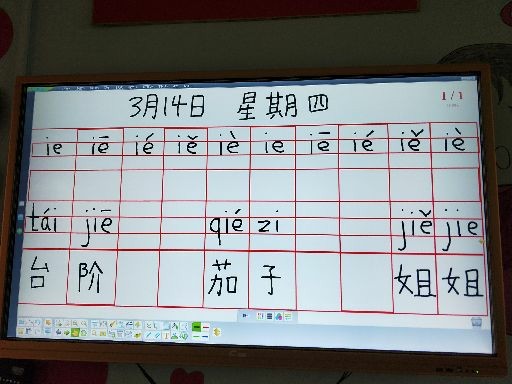 3月14日 星期四
1/1
ie iē ié iě iè ie iē ié iě iè
tái jiē qié zi jiě jie
台 阶 茄 子 姐 姐